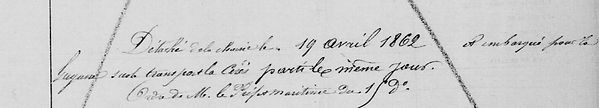 Détaché de la chaine le 19 avril 1862 et embarqué pour la
Guyane sur le transport la Cérès parti le même jour.
(Ordre de M. le Préfet maritime du 15 do.